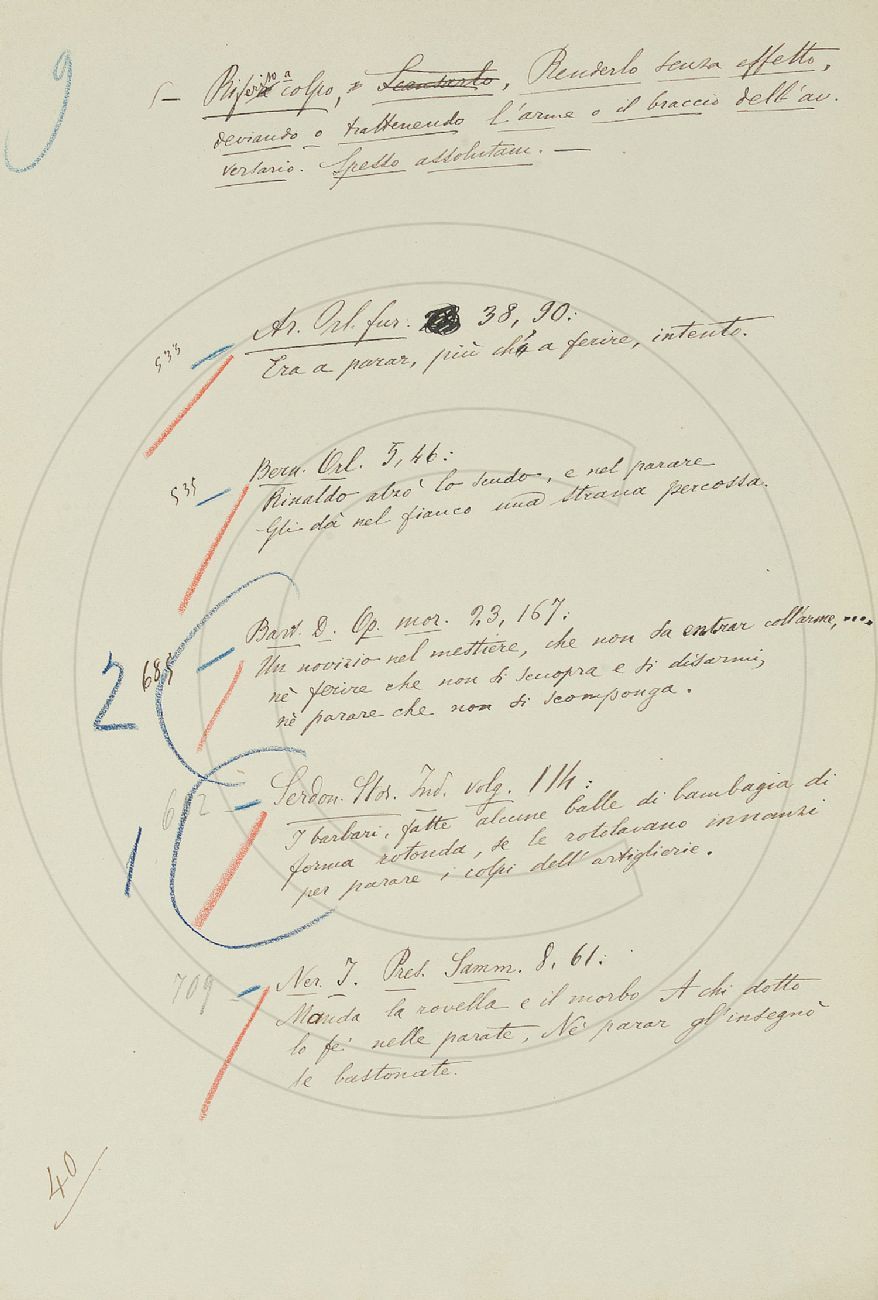 9
5 — Riferito a colpo, Scansarlo, Renderlo senza effetto,
deviando o trattenendo l'arme o il braccio dell'av-
versario. Spesso assolutam. —
533 — Ar. Orl. fur. 38, 90:
Era a parar, più ch' a ferire, intento.
535 — Bern. Orl. 5, 46:
Rinaldo alzò lo scudo, e nel parare
Gli dà nel fianco una strana percossa.
2 685 — Bart. D. Op. mor. 23, 167:
Un novizio nel mestiere, che non sa entrar coll'arme, ....
nè ferire che non si scuopra e si disarmi,
nè parare che non si scomponga.
1 692 — Serdon. Stor. Ind. volg. 114:
I barbari, fatte alcune balle di bambagia di
forma rotonda, se le rotolavano innanzi
per parare i colpi dell'artiglierie.
709 — Ner. I. Pres. Samm. 8, 61:
Manda la rovella e il morbo A chi dotto
lo fe' nelle parate, Nè parar gl'insegnò
le bastonate.
40